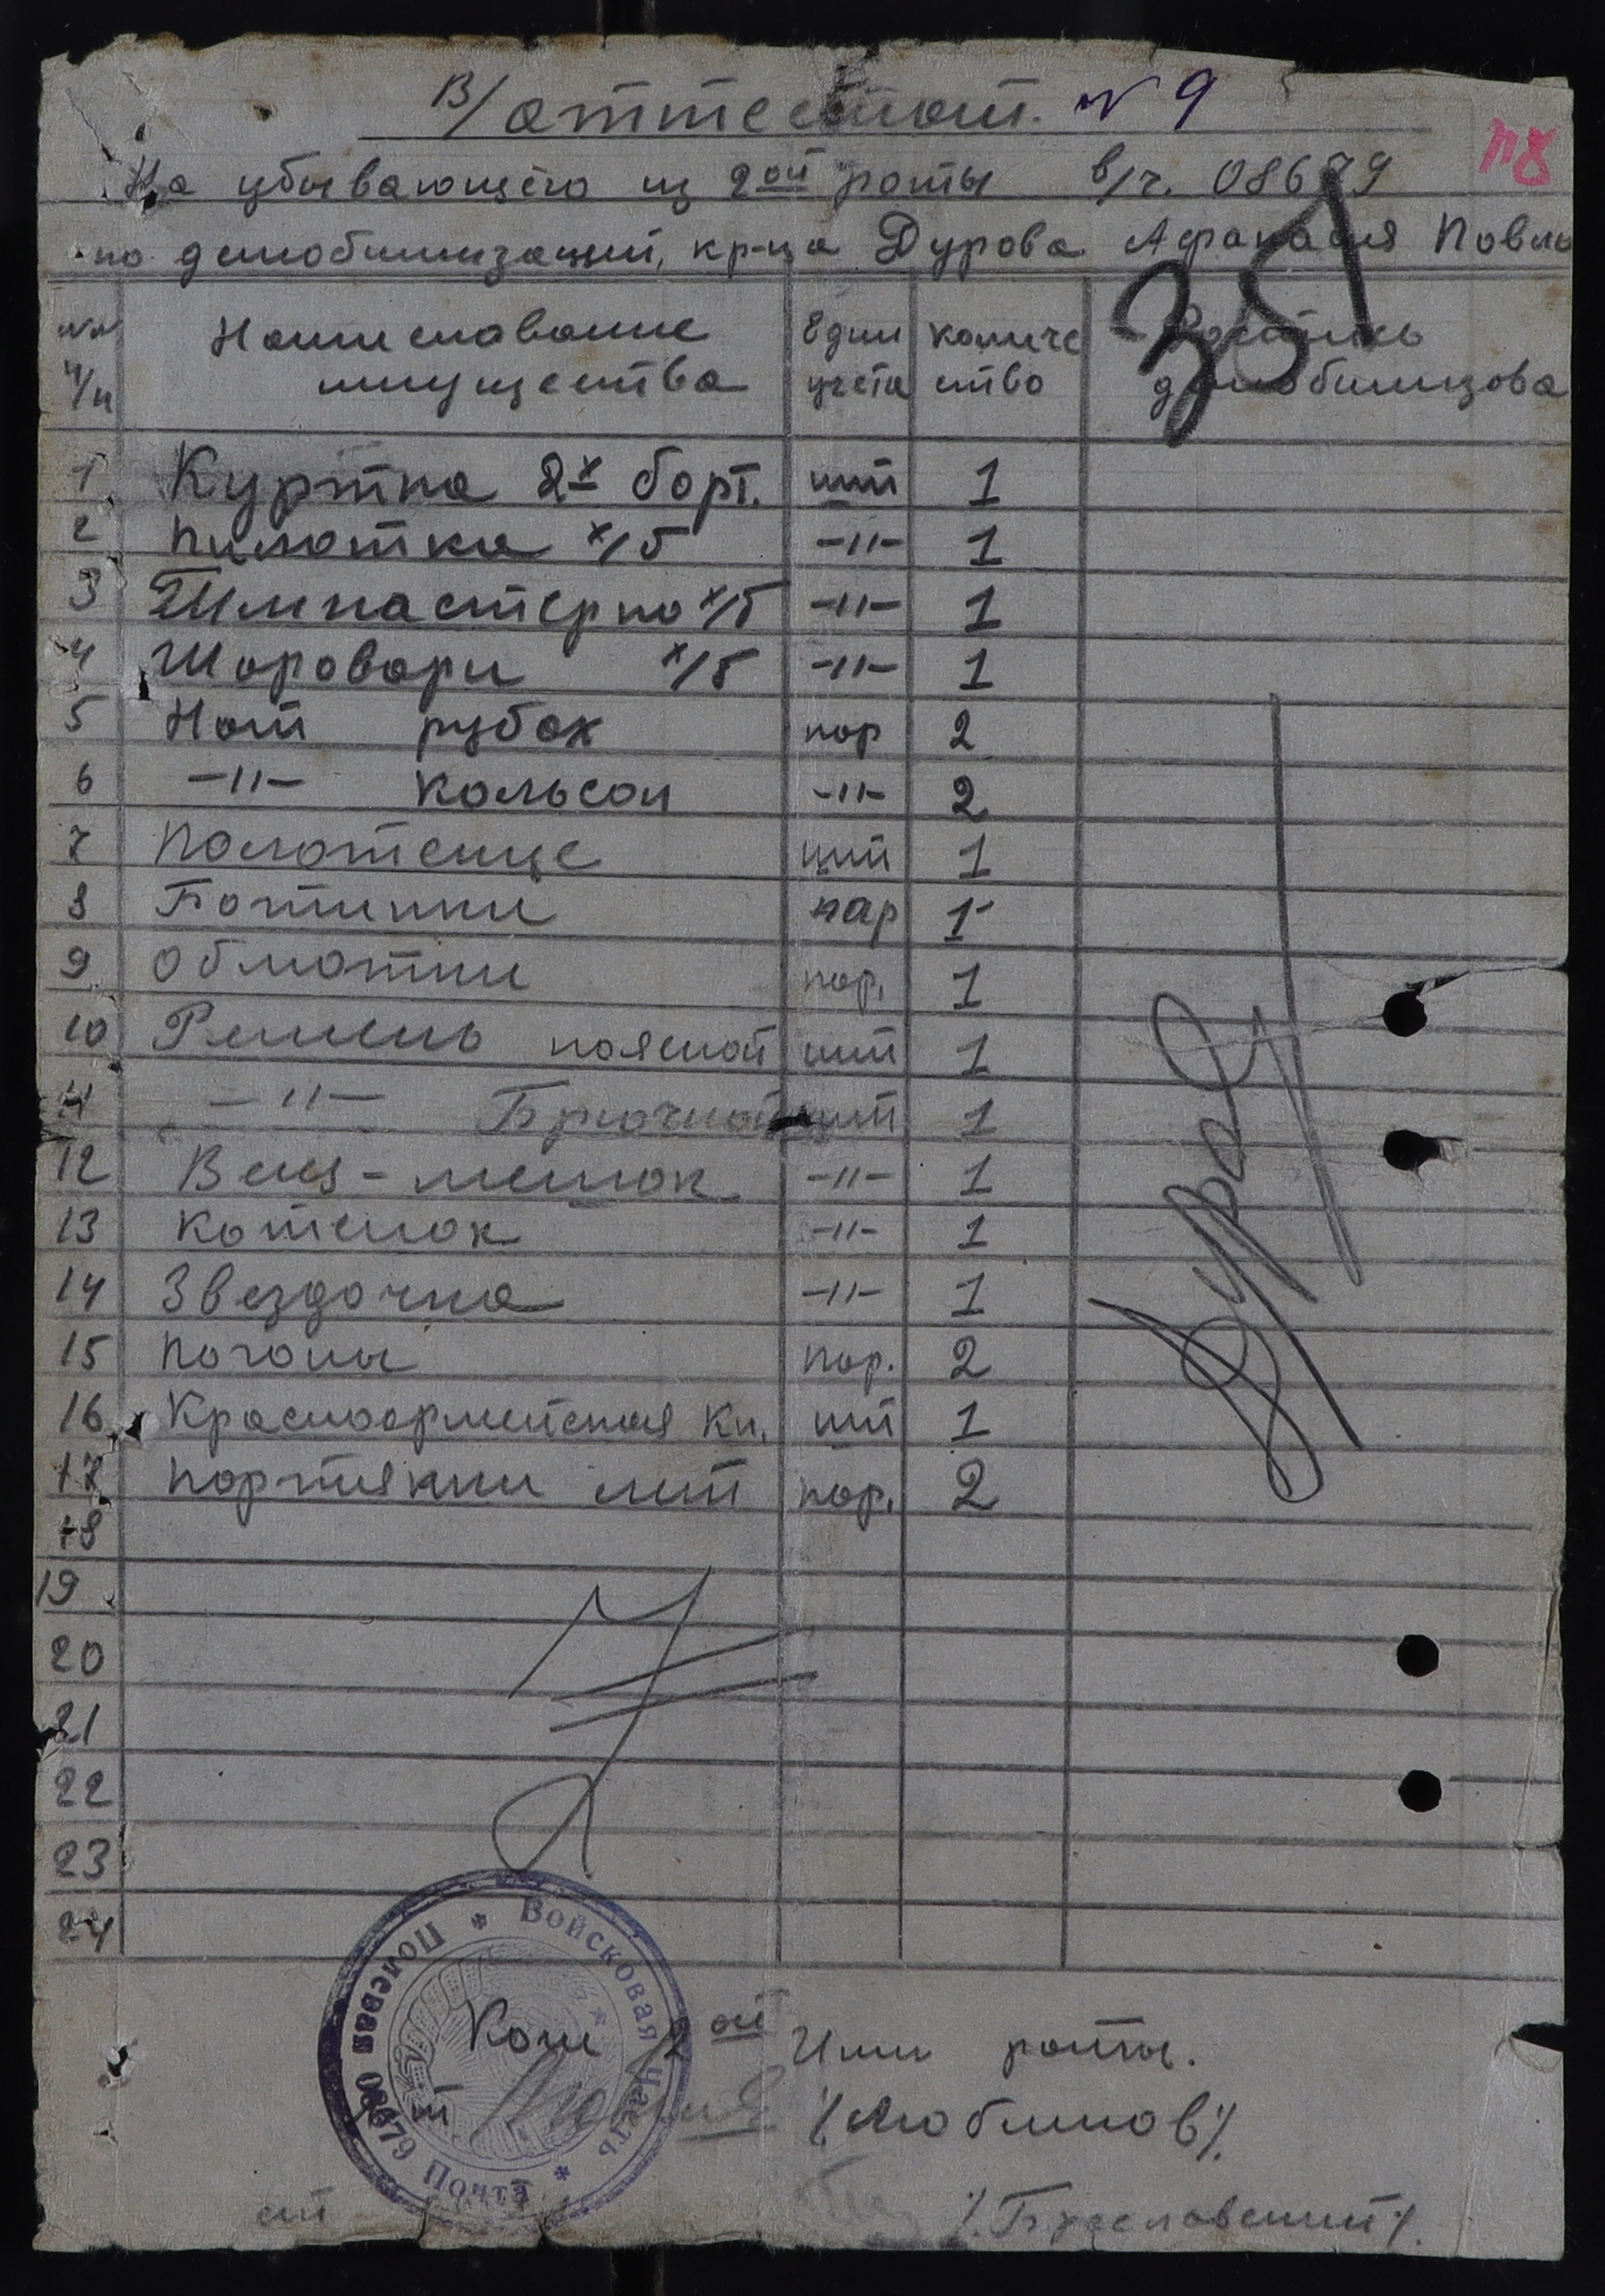 В/аттестат. № 9
На убывающего из 2ой роты в/ч. 08679
по демобилизации, кр-ца Дурова Афанасия Павло
№№ п/п Наименование имущества Един учета количе ство Роспись демобилизова
1 Куртка 2х борт. шт 1
2 Пилотка х/б -"- 1
3 Гимнастерка х/б -"- 1
4 Шаровари х/б -"- 1
5 Нат рубах пар 2
6 -"- Кальсон -"- 2
7 Полотенце шт 1
8 Ботинки пар 1
9 Обмотки пар. 1
10 Ремень поясной шт 1
11 -"- Брючной шт 1
12 Вещ-мешок -"- 1
13 Котелок -"- 1
14 Звездочка -"- 1
15 Погоны пар. 2
16 Красноармейская Кн. шт 1
17 Портянки лет пар. 2
18
19
20
21
22
23
24
Войсковая Часть * Полевая Почта 08679 *
Ком 2ой Мин роты.
/Люблинов/.
ст /.Буславский/.